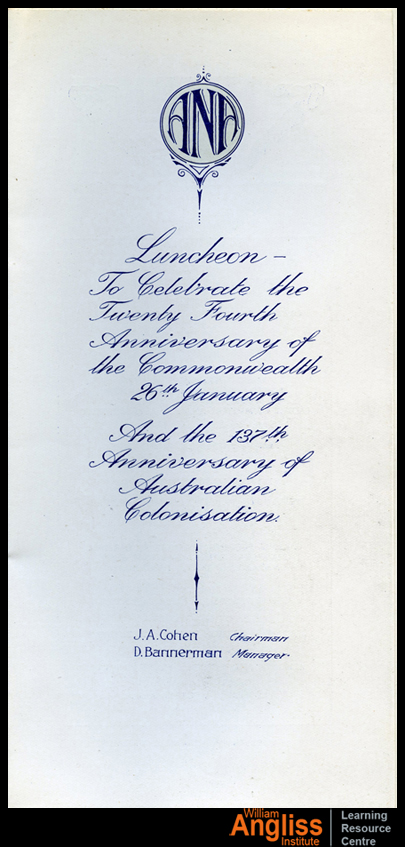 ANA
Luncheon –
To Celebrate the
Twenty Fourth
Anniversary of
the Commonwealth
26th January
And the 137th
Anniversary of
Australian
Colonisation.
J. A. Cohen Chairman
D. Bannerman Manager.
William
Angliss
Institute
Learning
Resource
Centre